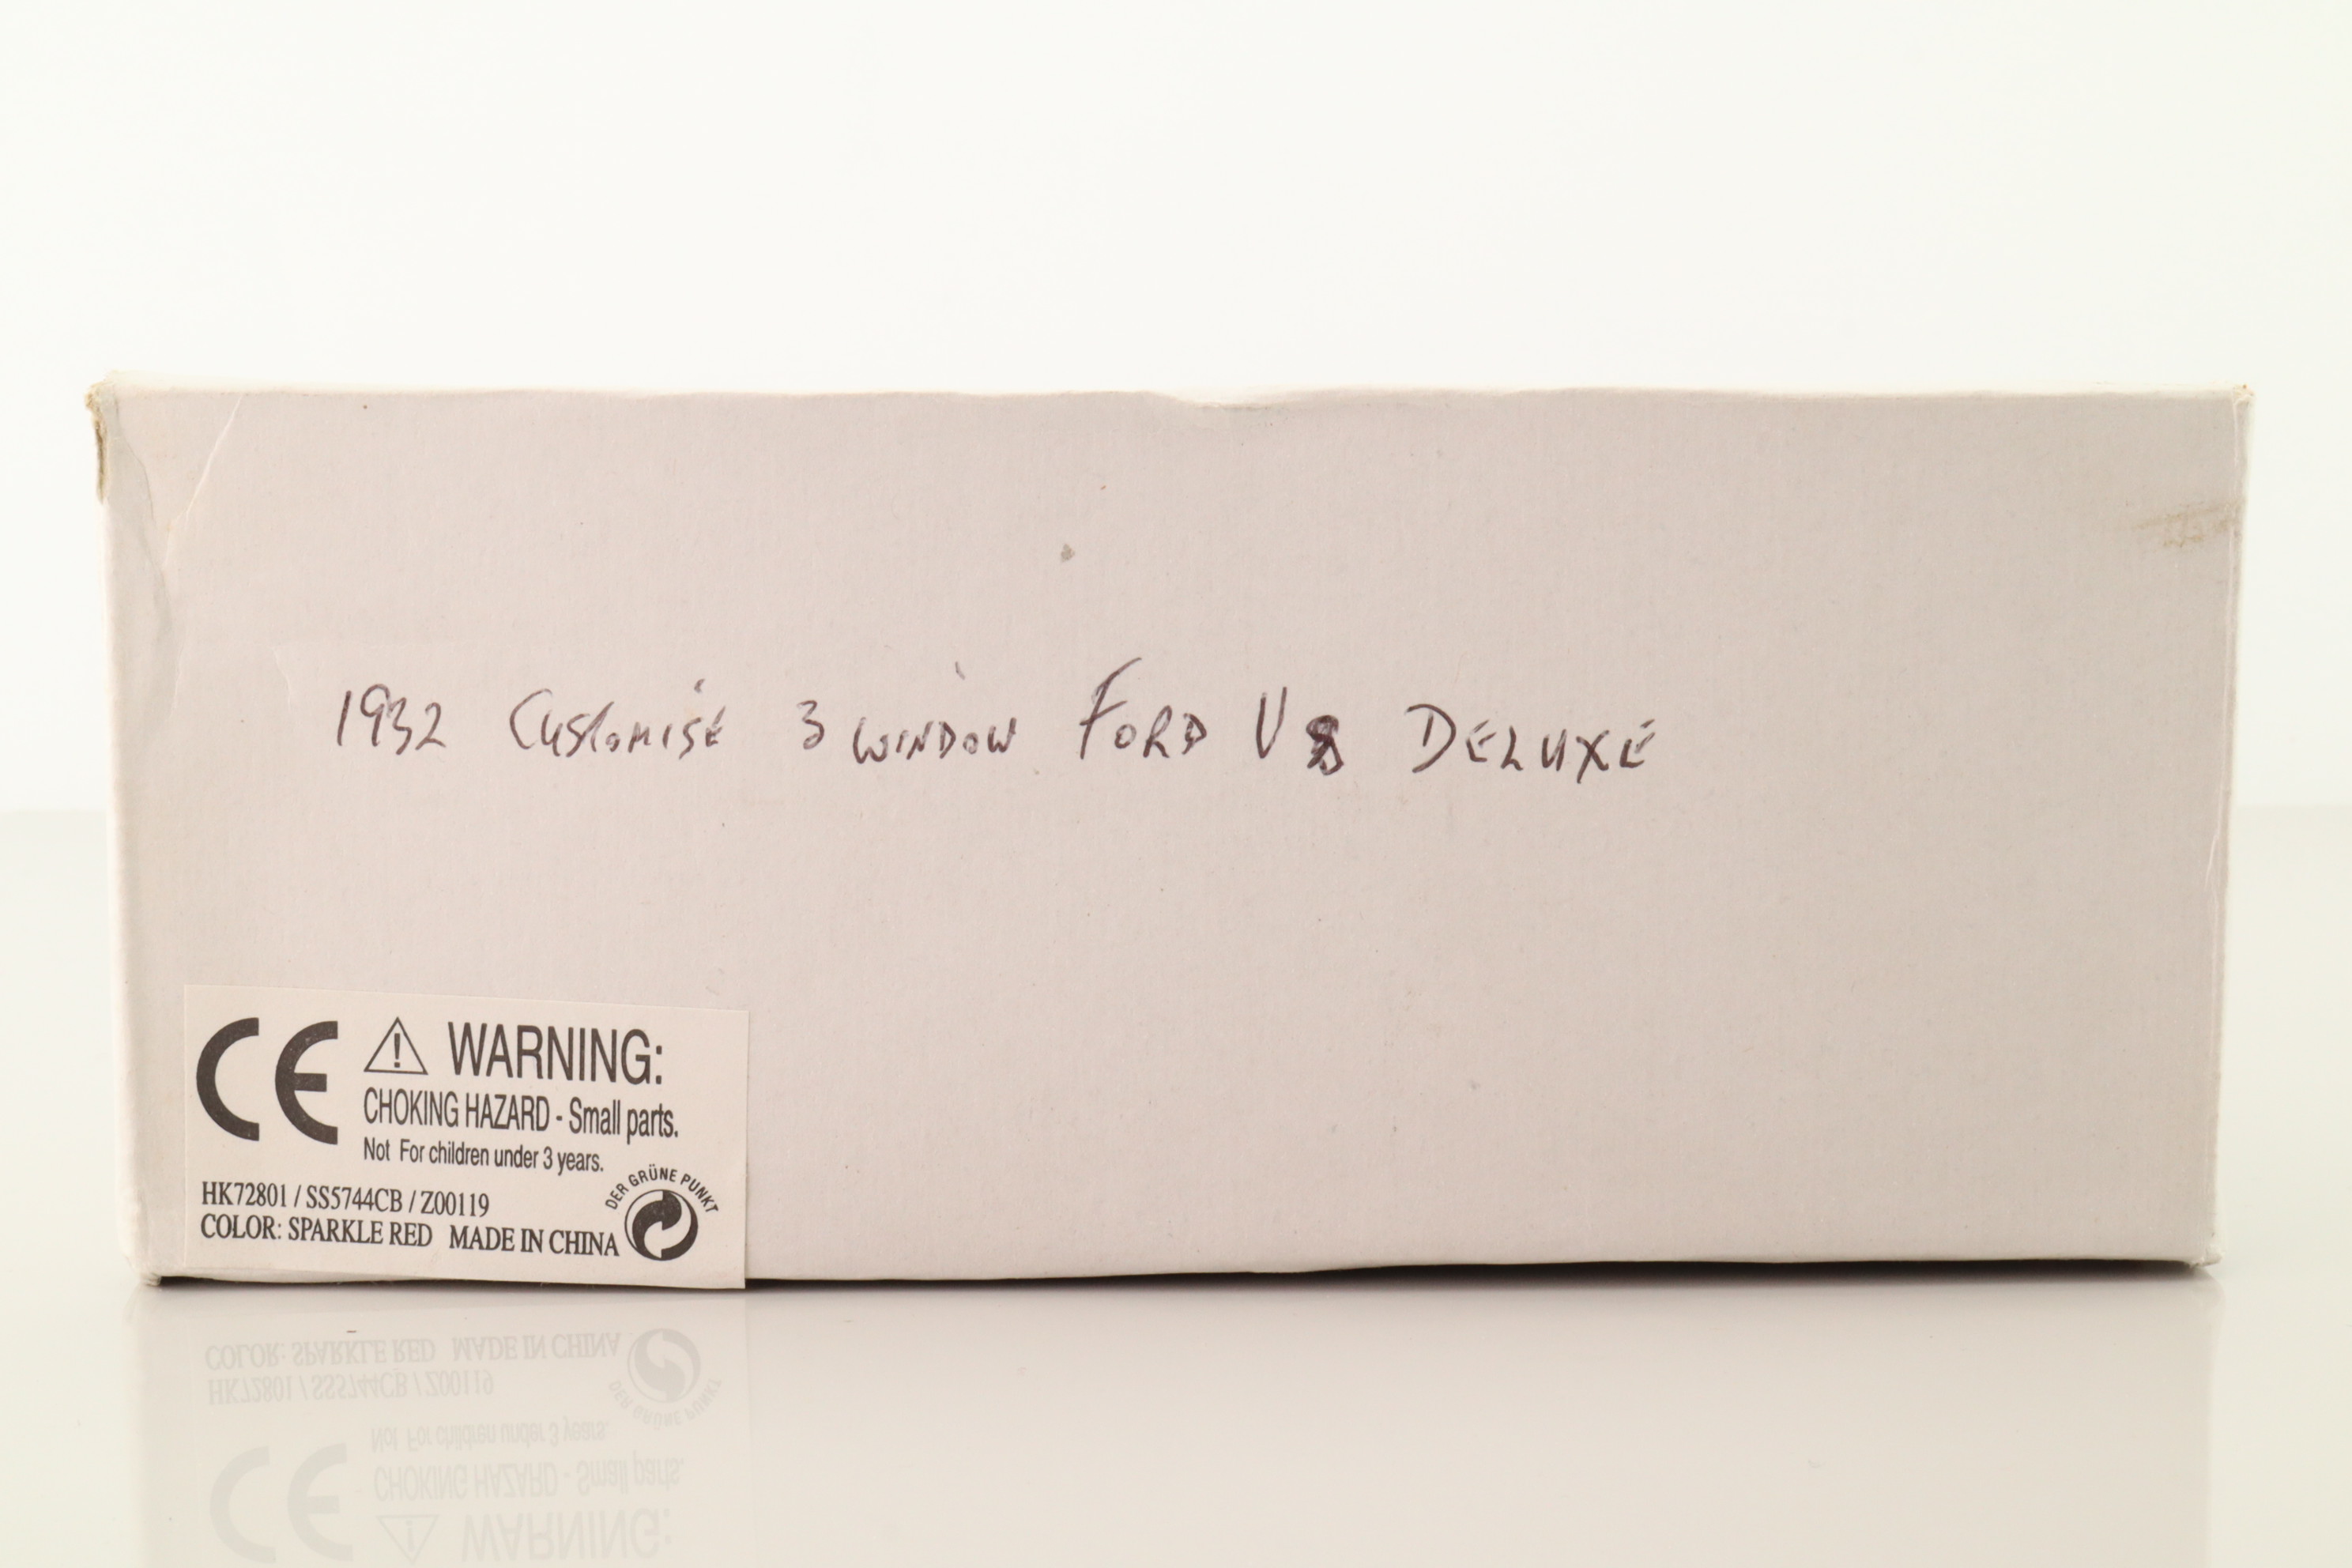 1932 Customise 3 WINDOW FORD V8 DELUXE
CE
WARNING:
CHOKING HAZARD - Small parts.
Not For children under 3 years.
DER GRÜNE PUNKT
HK72801 / SS5744CB / Z00119
COLOR: SPARKLE RED MADE IN CHINA